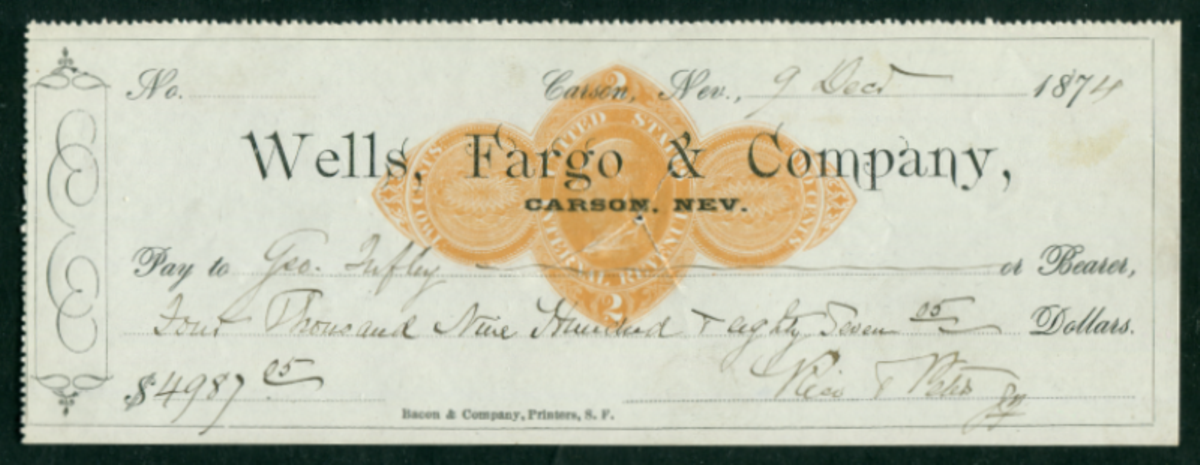 No.
Carson, Nev., 9 Dect 1874
Wells, Fargo & Company,
CARSON, NEV.
2
UNITED STATES
INTERNAL REVENUE
2
TWO CENTS
TWO CENTS
Pay to Geo. Tufly or Bearer,
Four Thousand Nine Hundred & eighty Seven 05 Dollars.
$4987 05
Rice & Peters
Bacon & Company, Printers, S. F.